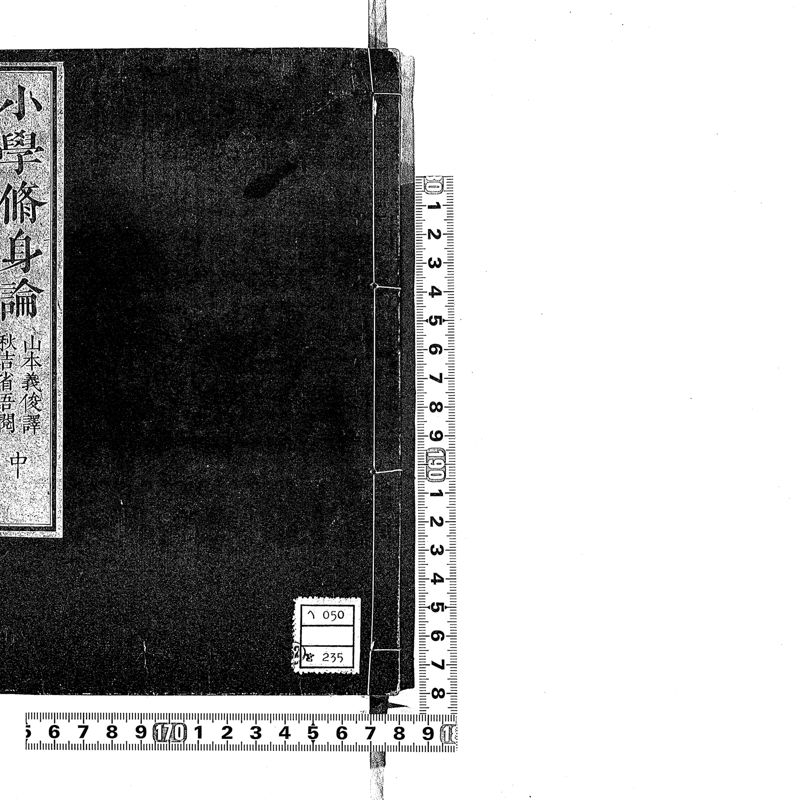 小學脩身論
山本義俊譯
秋吉省吾閲
中
ヘ 050
235
80 1 2 3 4 5 6 7 8 9 190 1 2 3 4 5 6 7 8
5 6 7 8 9 170 1 2 3 4 5 6 7 8 9